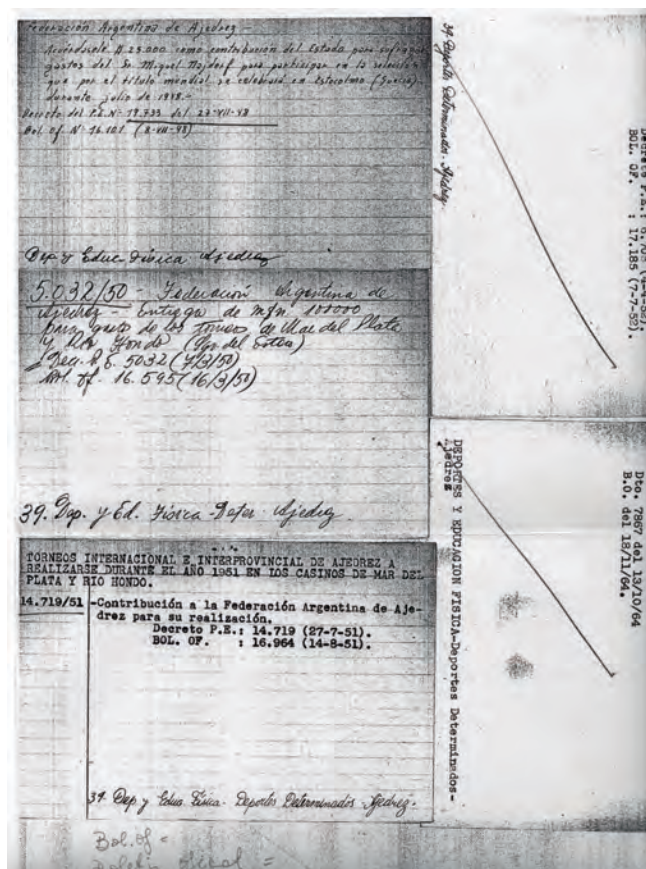 Federación Argentina de Ajedrez -
Acuérdasele $ 25.000 como contribución del Estado para sufragar
gastos del Sr. Miguel Najdorf para participar en la selección
que por el título mundial se celebrará en Estocolmo (Suecia)
durante julio de 1948.-
Decreto del P.E.N- 19.733 del
Bol. Of. N- 16.101
Dep. y Educ. Física Ajedrez
5.032/50 - Federación Argentina de
Ajedrez - Entrega de m$n. 100000
para gasos de los Torneos de Mar del Plata
y Río Hondo (Sgo. del Estero)
Dec. P.E. 5032 (7/3/50)
Bol. Of. 16.595 (16/3/50)
39. Dep. y Ed. Física - Deter. Ajedrez
TORNEOS INTERNACIONAL E INTERPROVINCIAL DE AJEDREZ A
REALIZARSE DURANTE EL AÑO 1951 EN LOS CASINOS DE MAR DEL
PLATA Y RIO HONDO.
14.719/51 -Contribución a la Federación Argentina de Aje-
drez para su realización.
Decreto P.E.: 14.719 (27-7-51).
BOL. OF. : 16.964 (14-8-51).
39 Dep. y Educa. Física - Deportes Determinados - Ajedrez.
Bol. Of =
Boletín oficial =
39 Deportes Determinados - Ajedrez.
Decreto P.E.:
BOL. OF. : 17.185 (7-7-52).
DEPORTES Y EDUCACION FISICA-Deportes Determinados-
Ajedrez
Dto. 7867 del 13/10/64
B.O. del 18/11/64.